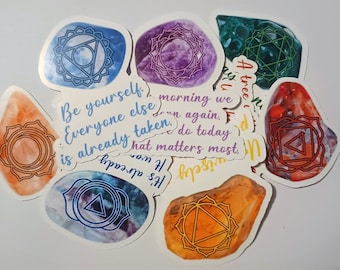 Be yourself,
Everyone else
is already taken.
morning we
again.
do today
that matters most.
A tree
It's already
It
wisely